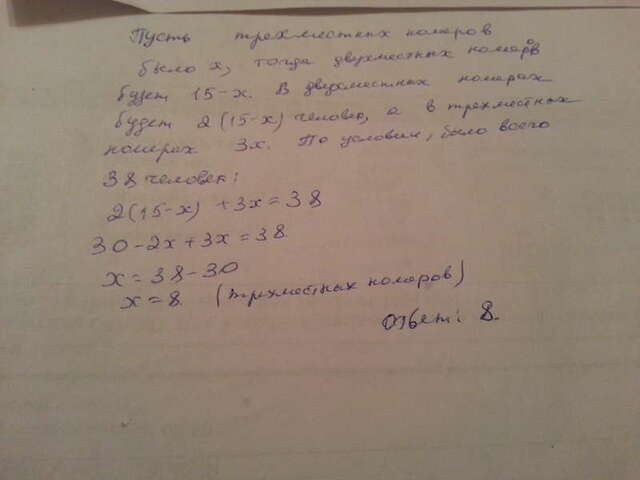 Пусть трехместных номеров
было x, тогда двухместных номеров
будет 15-x. В двухместных номерах
будет 2(15-x) человек, а в трехместных
номерах 3x. По условию, было всего
38 человек:
2(15-x) +3x=38
30-2x+3x=38
x=38-30
x=8 (трехместных номеров)
Ответ: 8.